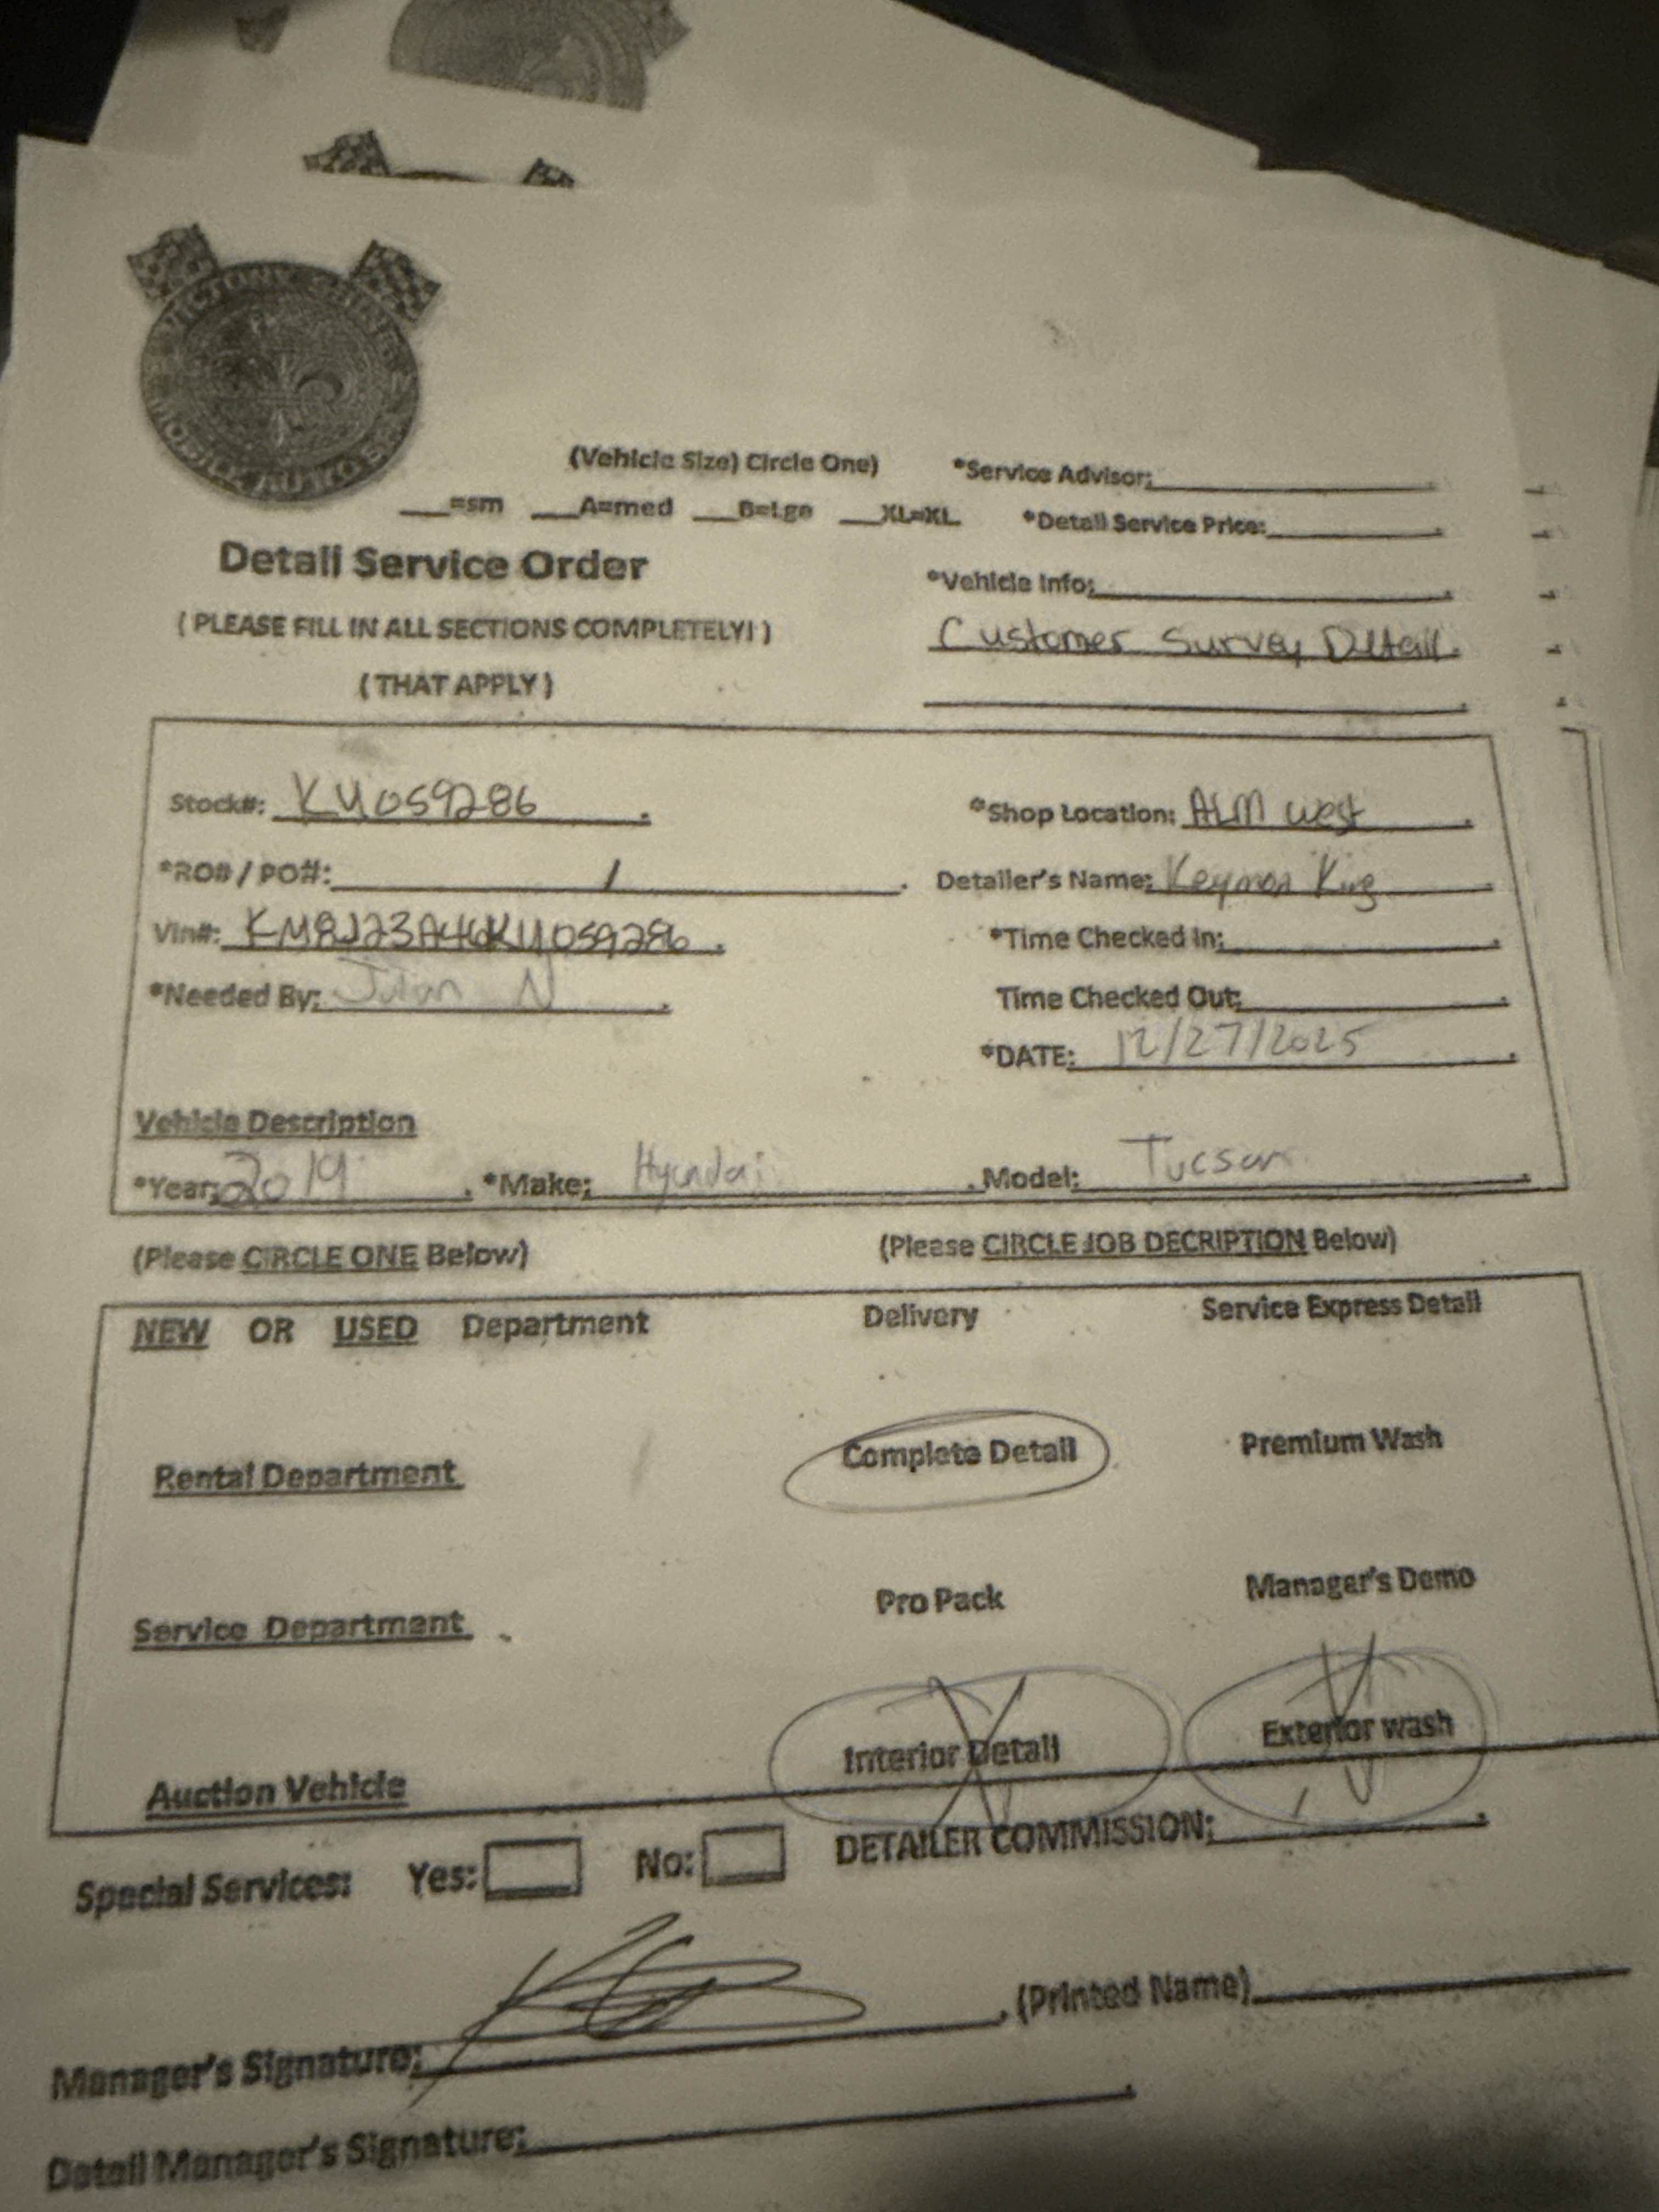 VICTORY
MOBILE AUTO
(Vehicle Size) Circle One)
*Service Advisor:
___=sm ___A=med ___B=Lge ___XL=XL
*Detail Service Price:
Detail Service Order
*Vehicle Info:
( PLEASE FILL IN ALL SECTIONS COMPLETELY! )
Customer Survey Detail.
( THAT APPLY )
Stock#: KU059286.
*Shop Location: ALM west.
*RO# / PO#: /.
Detailer's Name: King
Vin#: KM8J23A46KU059286.
*Time Checked In:
*Needed By: N.
Time Checked Out:
*DATE: 12/27/2025.
Vehicle Description
*Year: 2019. *Make: Hyundai. Model: Tucson
(Please CIRCLE ONE Below)
(Please CIRCLE JOB DECRIPTION Below)
NEW OR USED Department
Delivery
Service Express Detail
Rental Department
Complete Detail
Premium Wash
Service Department
Pro Pack
Manager's Demo
Auction Vehicle
Interior Detail
Exterior wash
Special Services: Yes: No:
DETAILER COMMISSION:
Manager's Signature: . (Printed Name)
Detail Manager's Signature: